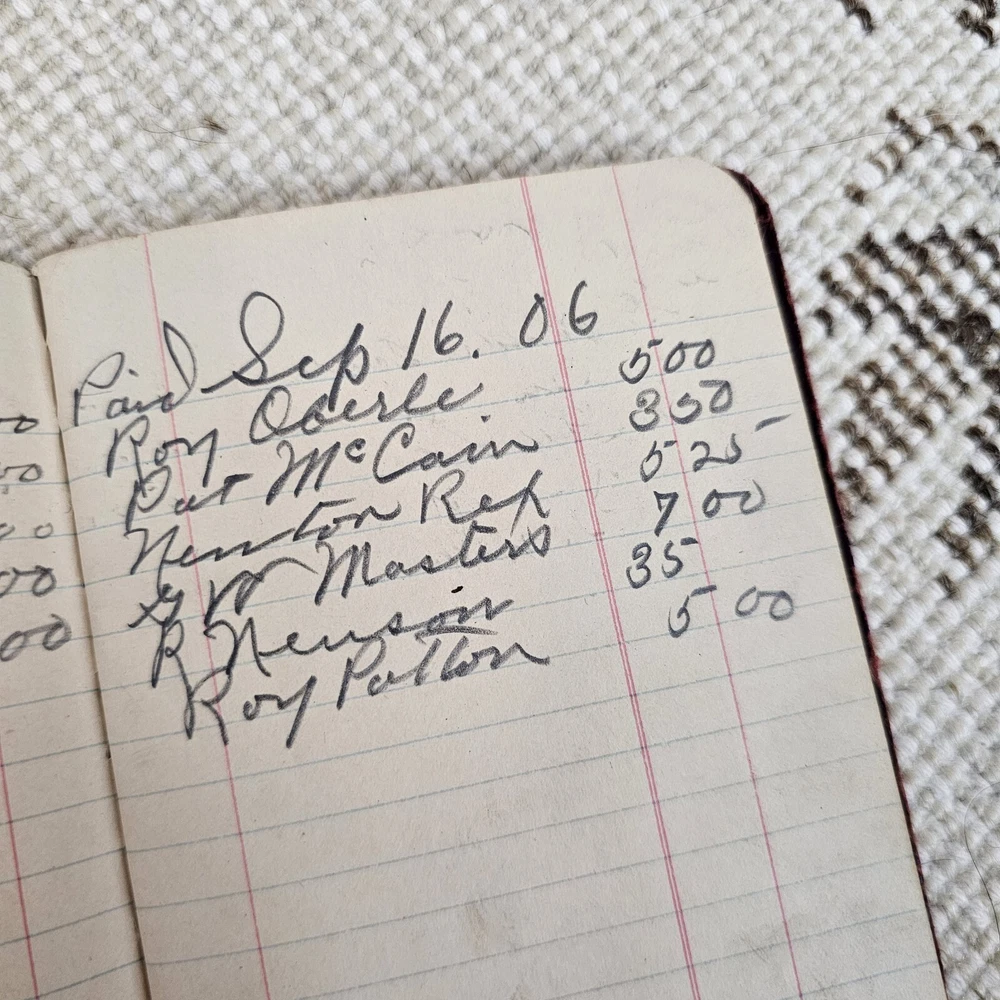 Paid Sep 16. 06
Roy Oberle 500
Pat McCain 350
Newton Rex 525
G W Masters 700
R Henson 35
Roy Patton 500
00
00
00
00
00